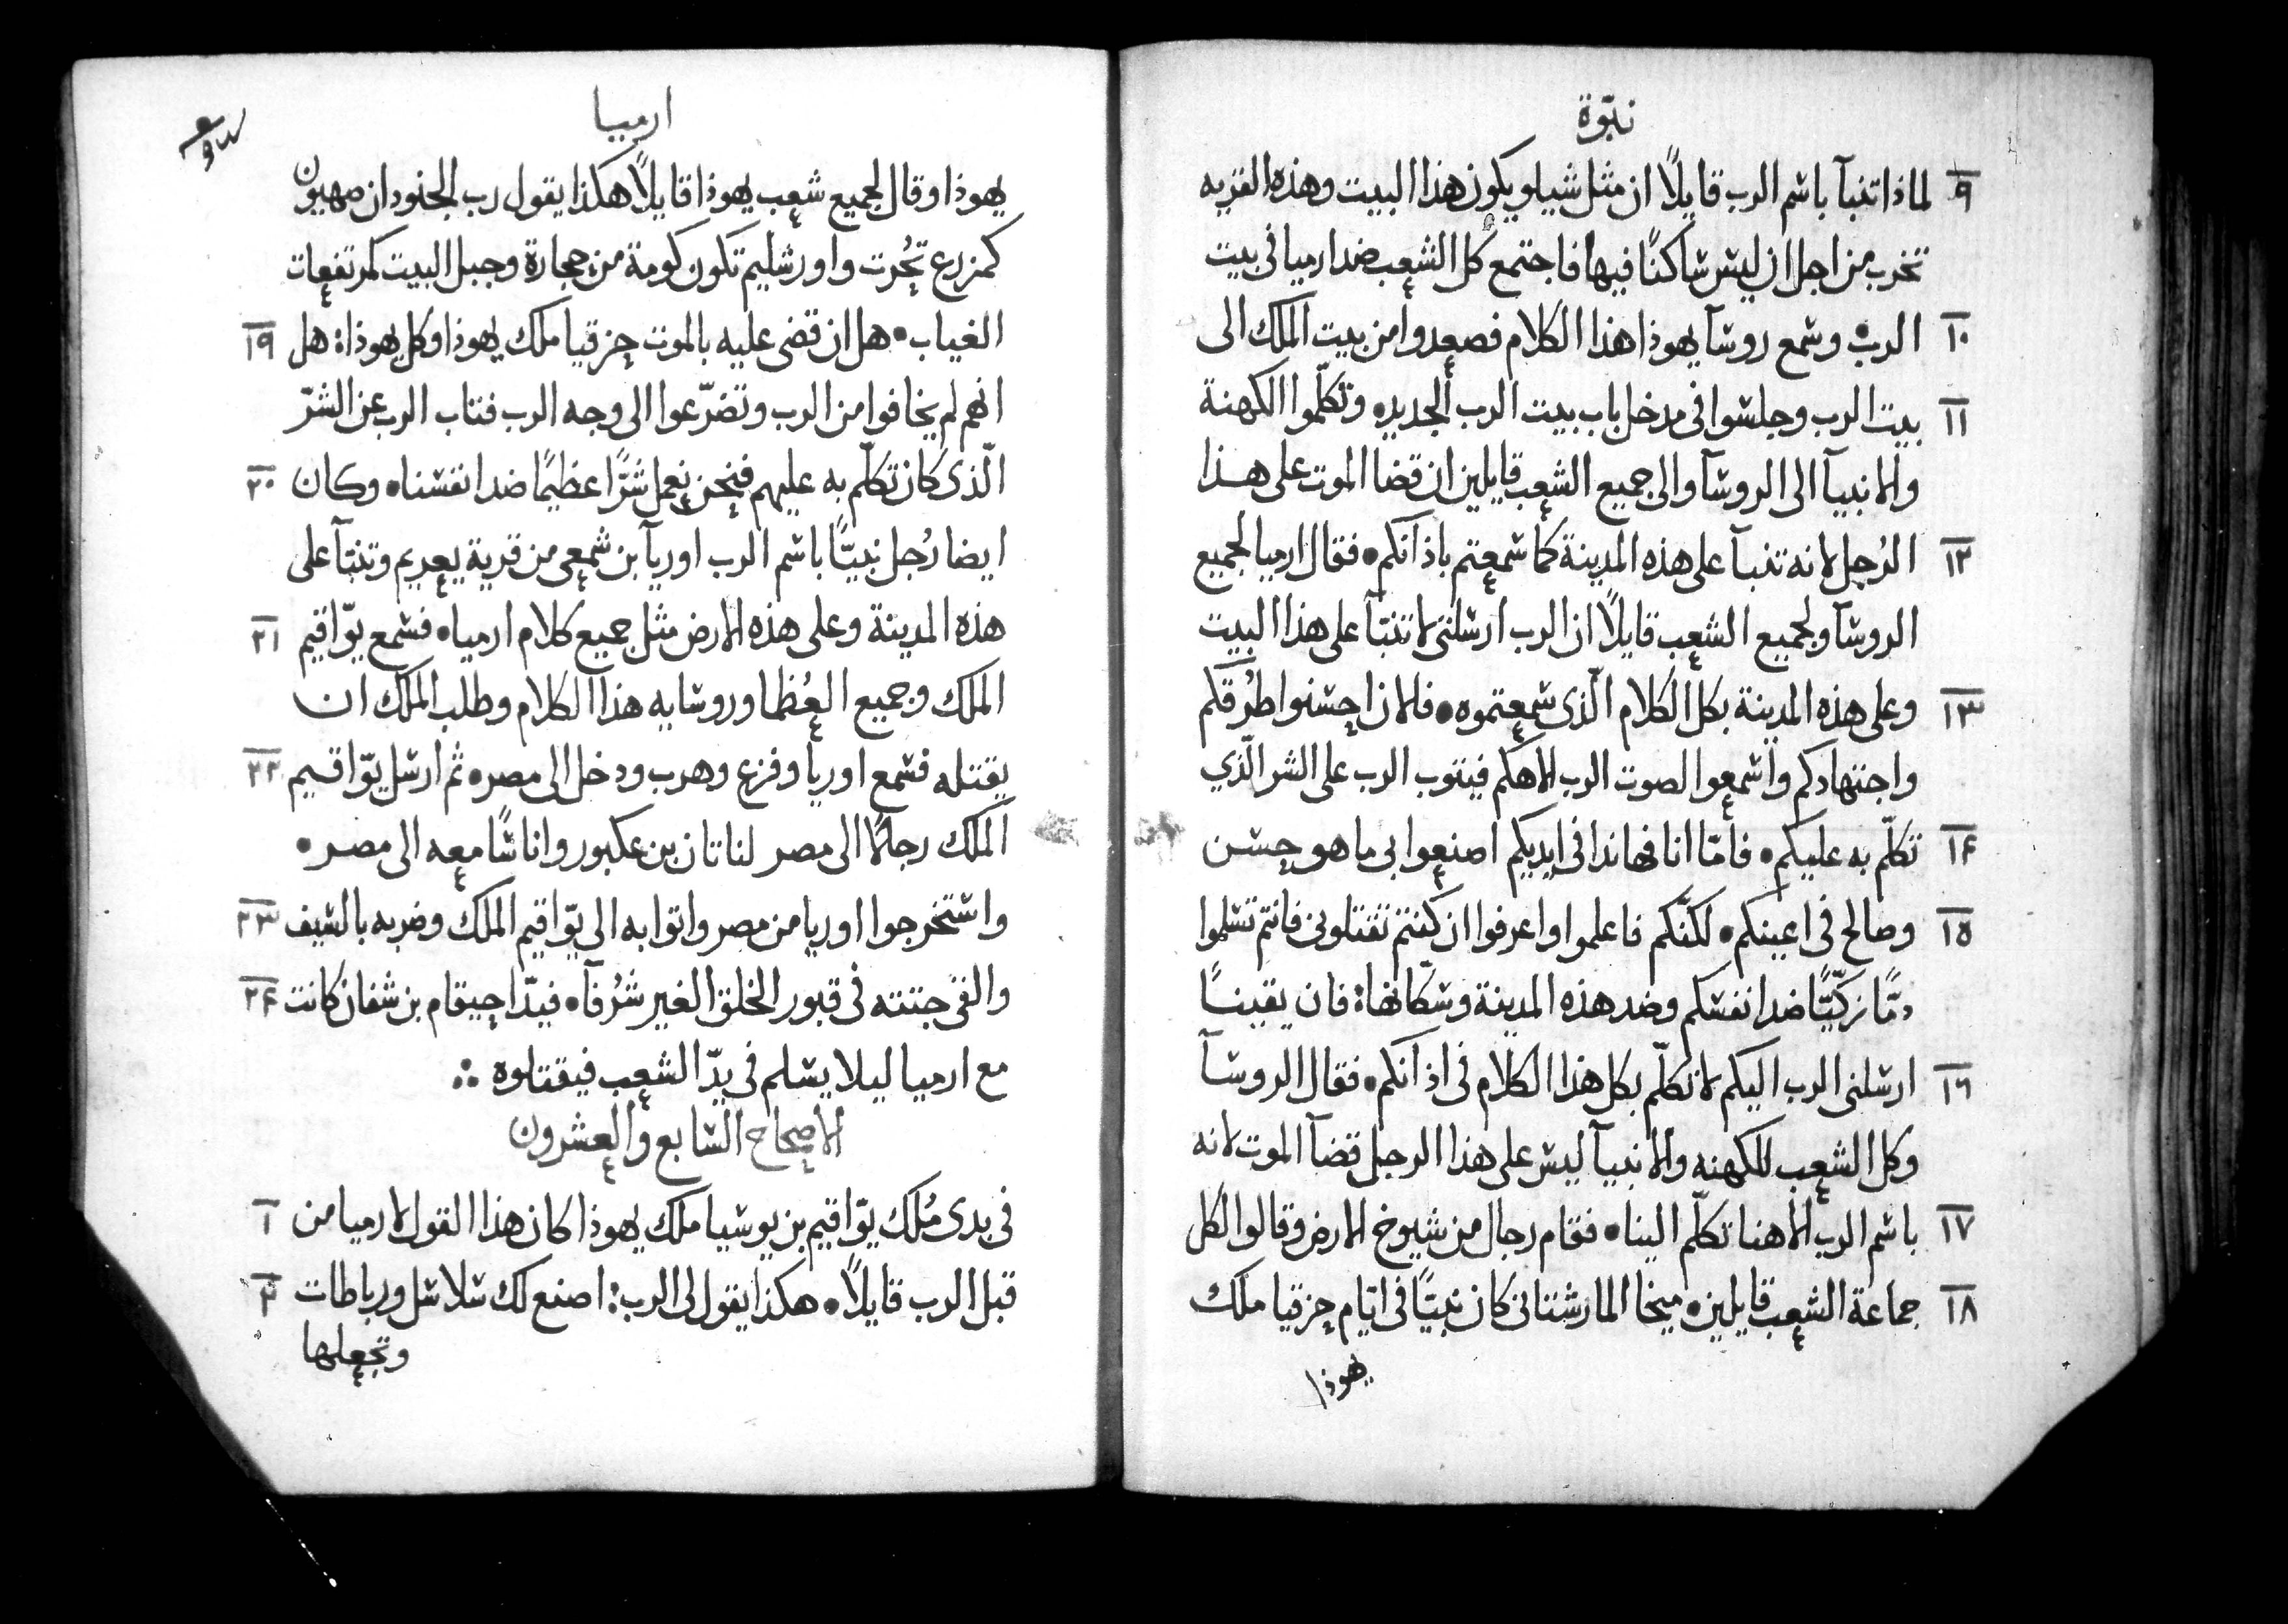 نبوّة
٩ لماذا تنبآ باسم الرب قايلاً ان مثل شيلو يكون هذا البيت وهذه القريه
تخرب من اجل ان ليس ساكنًا فيها فاجتمع كل الشعب ضد ارميا في بيت
١٠ الرب• وسمع روسآ يهوذا هذا الكلام فصعدوا من بيت الملك الى
١١ بيت الرب وجلسوا في مدخل باب بيت الرب الجديد• وتكلّموا الكهنة
والانبيآ الى الروسآ والى جميع الشعب قايلين ان قضا الموت على هذا
١٢ الرُجل لانه تنبآ على هذه المدينة كما سمعتم باذانكم• فقال ارميا لجميع
الروسآ ولجميع الشعب قايلاً ان الرب ارسلنى لاتنبّآ على هذا البيت
١٣ وعلى هذه المدينة بكل الكلام الّذى سمعتموه• فالان احسنوا طرُقكم
واجتهادكم واسمعوا لصوت الرب الاهكم فيتوب الرب على الشر الّذي
١٤ تكلّم به عليكم• فامّا انا فهانذا في ايديكم اصنعوا بى ما هو حسن
١٥ وصالح في اعينكم• لكنّكم فاعلموا واعرفوا ان كنتم تقتلونى فانتم تسلموا
دمًّا زكيًّا ضد انفسكم وضد هذه المدينة وسكّانها: فان يقينًا
١٦ ارسلنى الرب اليكم لاتكلّم بكل هذا الكلام في اذانكم• فقال الروسآ
وكل الشعب للكهنه والانبيآ ليس على هذا الرجل قضآ الموت لانه
١٧ باسم الرب الاهنا تكلّم الينا• فقام رجال من شيوخ الارض وقالوا لكل
١٨ جماعة الشعب قايلين• ميخا المارستانى كان نبيًّا في ايّام حزقيا ملك
يهوذا
ارميا
يهوذا وقال لجميع شعب يهوذا قايلاً هكذا يقول رب الجنود ان صهيون
كمزرع تحُرت واورشليم تكون كومة من حجارة وجبل البيت كمرتفعات
١٩ الغياب• هل ان قضى عليه بالموت حزقيا ملك يهوذا وكل يهوذا: هل
انهم لم يخافوا من الرب وتضرّعوا الى وجه الرب فتاب الرب عن الشرّ
٢٠ الّذى كان تكلّم به عليهم فنحن نعمل شرًّا عظيمًا ضد انفسنا• وكان
ايضا رُجل نبيًّا باسم الرب اوريآ بن شمعى من قرية يعريم وتنبّآ على
٢١ هذه المدينة وعلى هذه الارض مثل جميع كلام ارميا• فسمع يوّاقيم
الملك وجميع العُظما وروسايه هذا الكلام وطلب الملك ان
٢٢ يقتله فسمع اوريا وفزع وهرب ودخل الى مصر• ثم ارسل يوّاقيم
الملك رجالاً الى مصر لناتان بن عكبور واناسًا معه الى مصر•
٢٣ واستخرجوا اوريا من مصر واتوا به الى يوّاقيم الملك وضربه بالسيف
٢٤ والقى جتته في قبور الخلق الغير شرُفآ• فيدّ احيقام بن شفان كانت
مع ارميا ليلا يسلم في يدّ الشعب فيقتلوه ∴
الاصحاح السابع والعشرون
١ في بدى مُلك يوّاقيم بن يوشيا ملك يهوذا كان هذا القول لارميا من
٢ قبل الرب قايلاً• هكذا يقول لى الرب: اصنع لك سلاسل ورباطات
وتجعلها